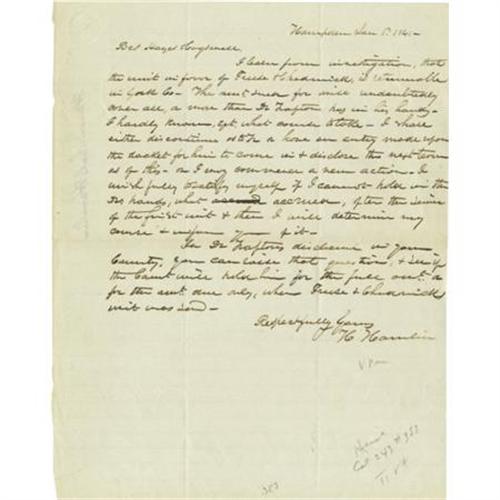 Hampden Jan 1. 1841-
Bros Hayes & Cogswell
I learn from investigation, that
the writ in favor of Freese & Chadwick, is returnable
in York Co- The amt sued for will undoubtedly
cover all, & more than Dr Trafton has in his hands-
I hardly know, yet, what course to take - I shall
either discontinue as to Tr & have an entry made upon
the docket for him to come in & disclose the next term
as of this - or I may commence a new action - I
wish fully to satisfy myself if I cannot hold in the
Drs hands, what accrued, after the service
of the first writ & then I will determine my
course & inform you of it-
In Dr Trafton's disclosure in your
County, you can raise that question, & see if
the Court will hold him for the full amt. or
for the amt. due only, when Freese & Chadwick
writ was served -
Respectfully Yours
H. Hamlin
Cat 243 #